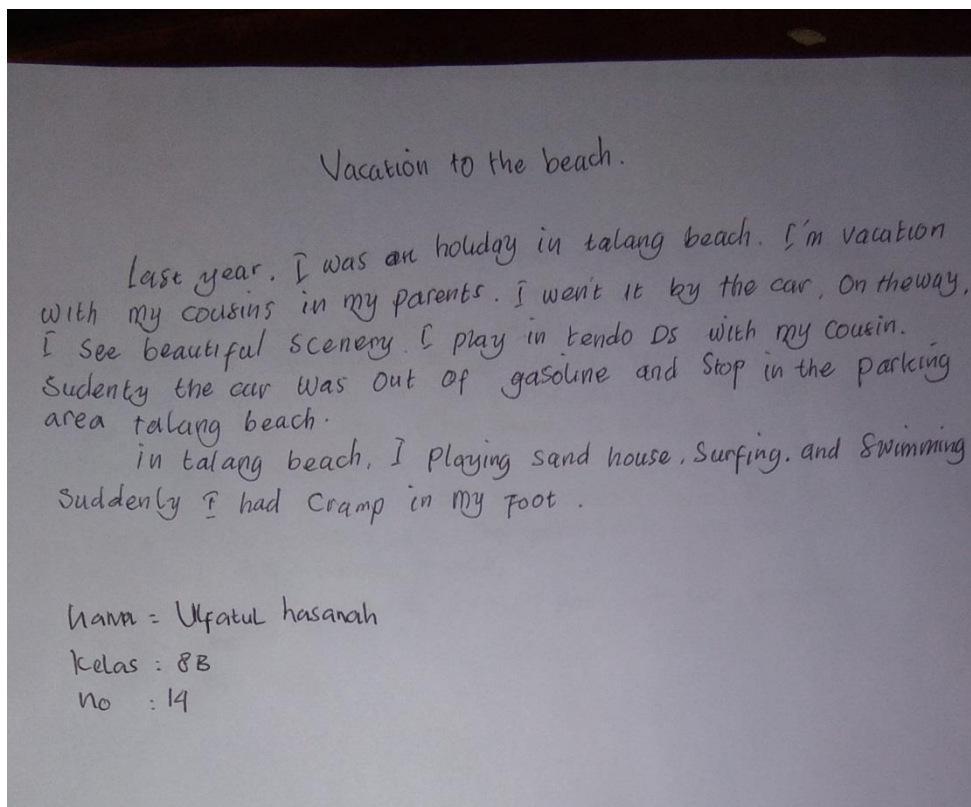 Vacation to the beach.
Last year, I was an holiday in talang beach. I'm vacation
with my cousins in my parents. I wen't it by the car, On theway,
I see beautiful scenery. I play in tendo Ds with my Cousin.
Sudenty the car was out of gasoline and Stop in the parking
area talang beach.
in talang beach, I Playing sand house, Surfing, and Swimming
Suddenly I had Cramp in my Foot.
Nama = Ulfatul hasanah
Kelas : 8B
no : 14